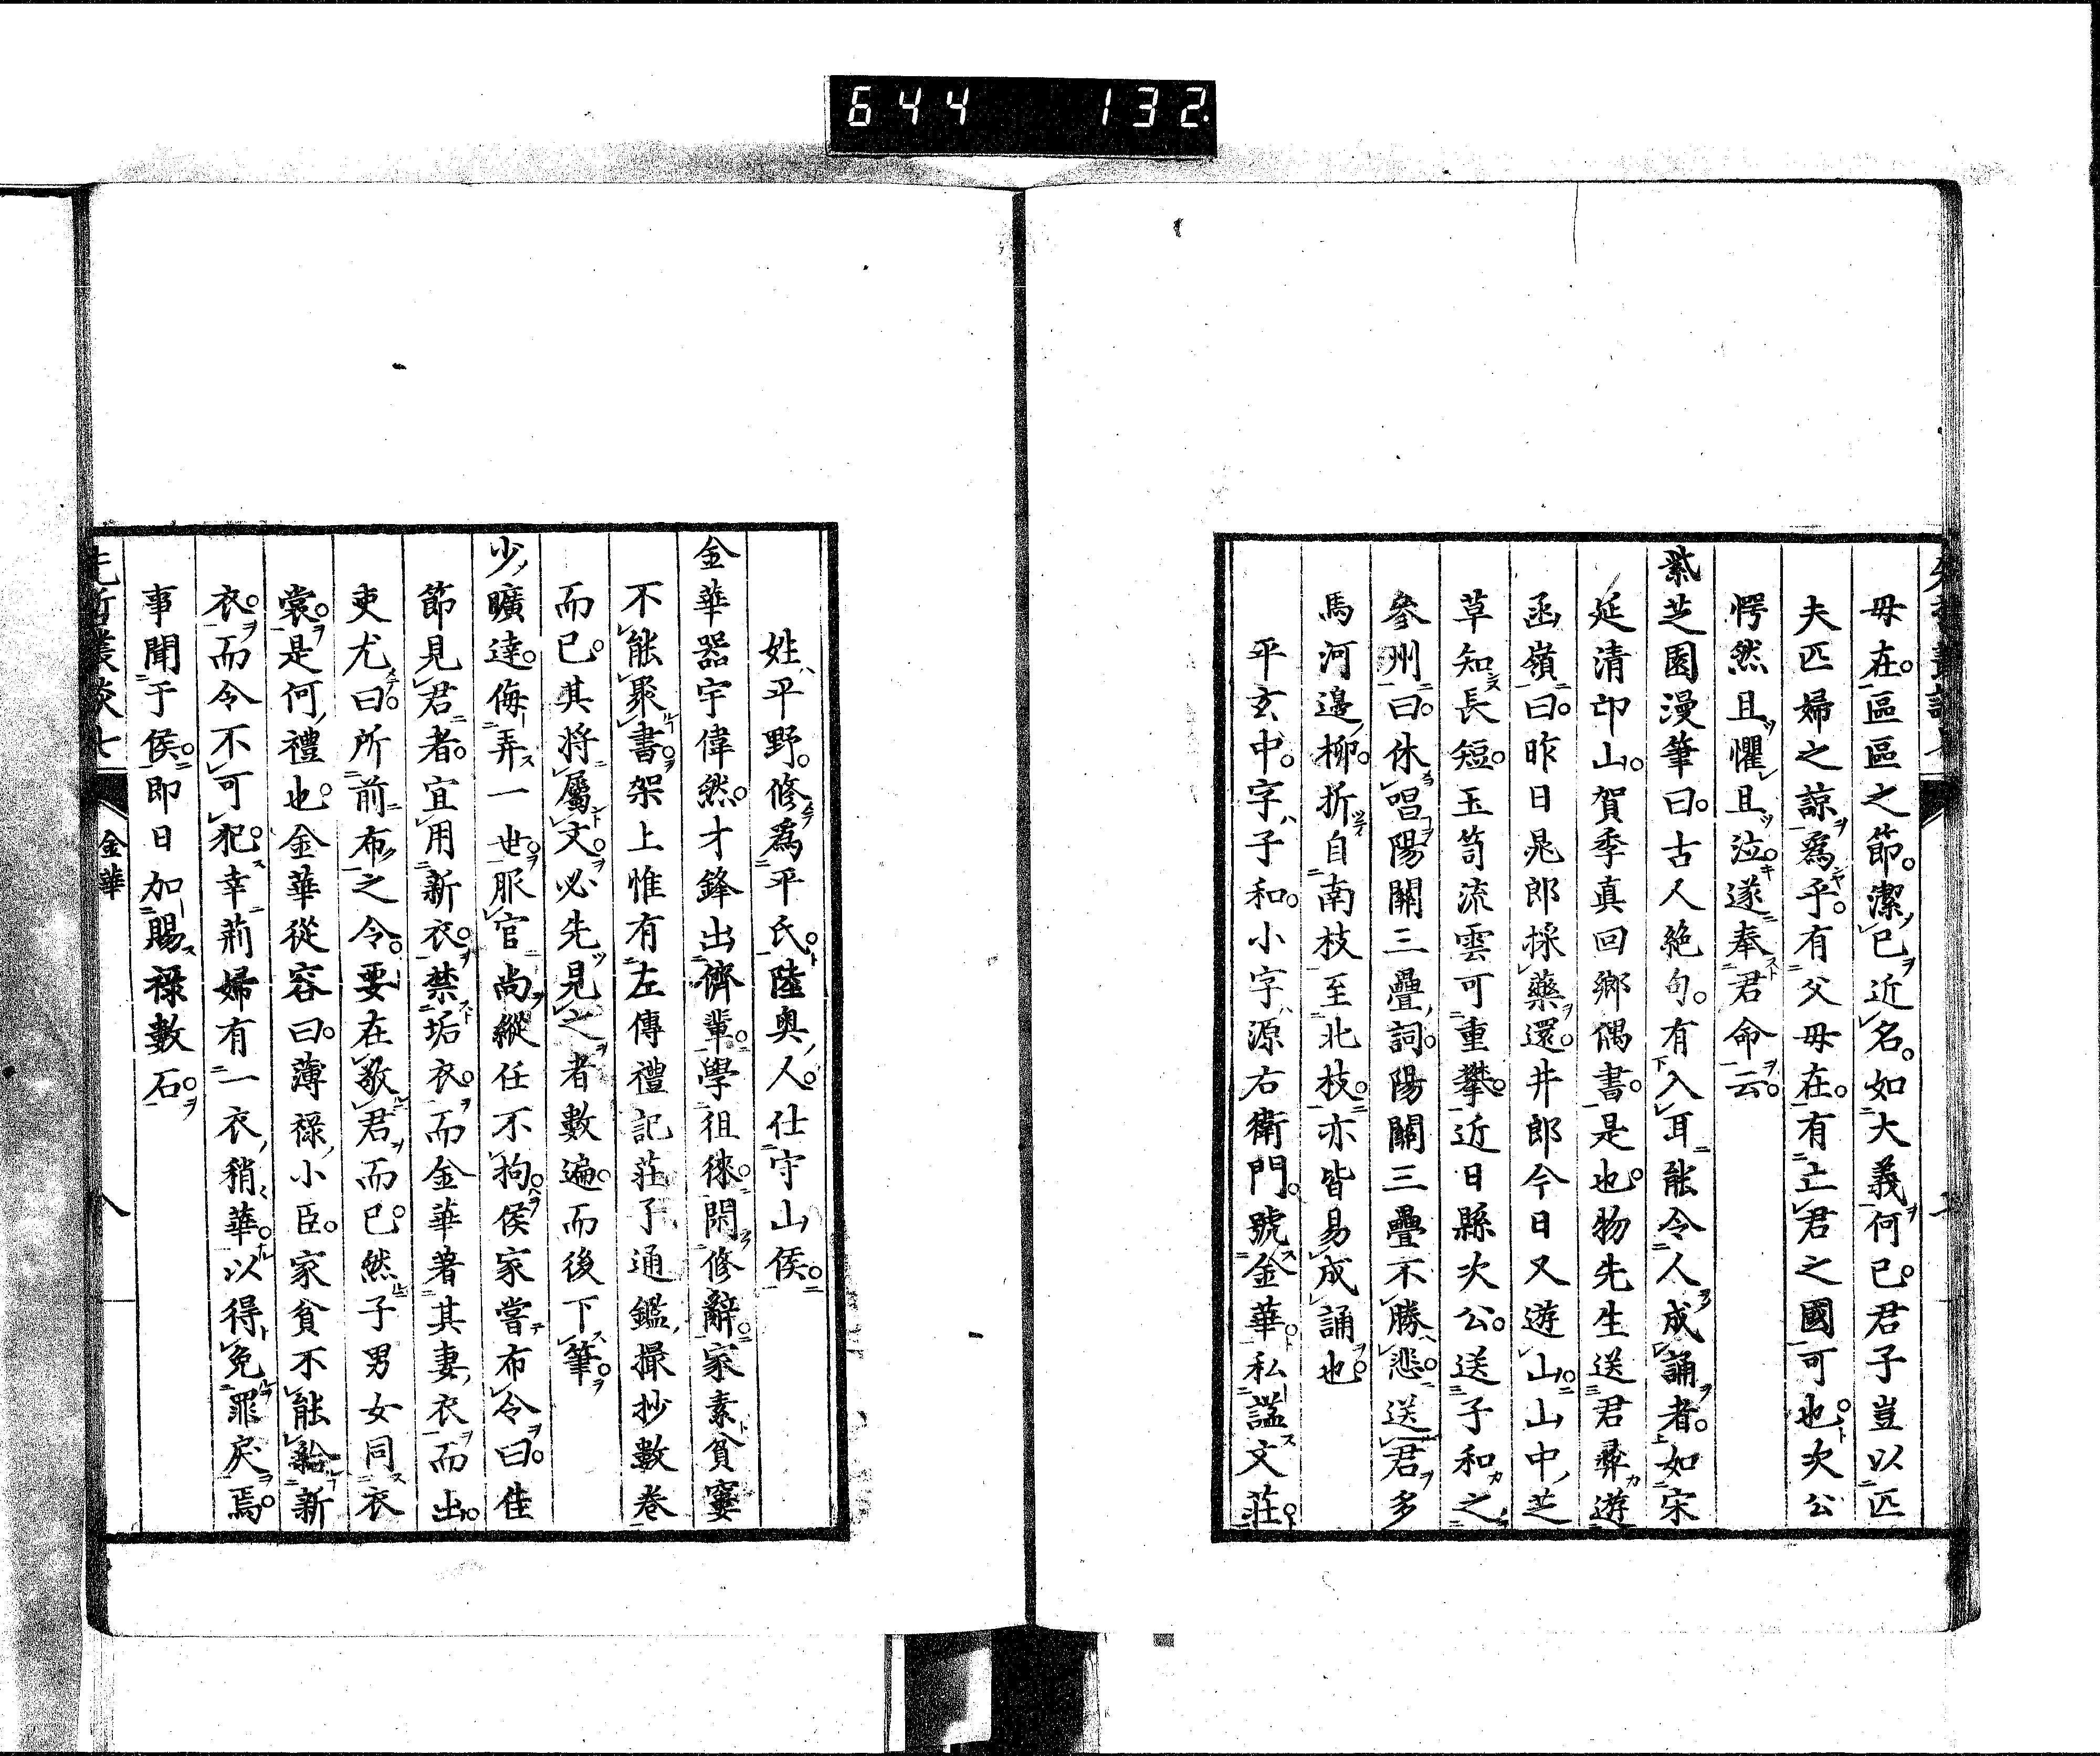 644 132
母在區區之節潔己近名如大義何已君子豈以匹
夫匹婦之諒爲乎有父母在有上君之國可也次公
愕然且懼且泣遂奉君命云
紫芝園漫筆曰古人絶句有入耳能令人成誦者如宋
延清卬山賀季真回鄉偶書是也物先生送君彝遊
函嶺曰昨日晁郎採藥還井郎今日又遊山山中芝
草知長短玉笥流雲可重攀近日縣次公送子和之
參州曰休唱陽關三疊詞陽關三疊不勝悲送君多
馬河邊柳折自南枝至北枝亦皆易成誦也
平玄中字子和小字源右衛門號金華私諡文莊
姓平野修爲平氏陸奥人仕守山侯
金華器宇偉然才鋒出儕輩學徂徠閑修辭家素貧窶
不能聚書架上惟有左傳禮記莊子通鑑撮抄數卷
而已其將屬文必先見之者數遍而後下筆
少曠達侮弄一世服官尚縱任不拘侯家嘗布令曰佳
節見君者宜用新衣禁垢衣而金華著其妻衣而出
吏尤曰所前布之令要在敬君而已然子男女同衣
裳是何禮也金華從容曰薄祿小臣家貧不能給新
衣而令不可犯幸荊婦有一衣稍華以得免罪戾焉
事聞于侯即日加賜祿數石
先哲叢談七
金華
八